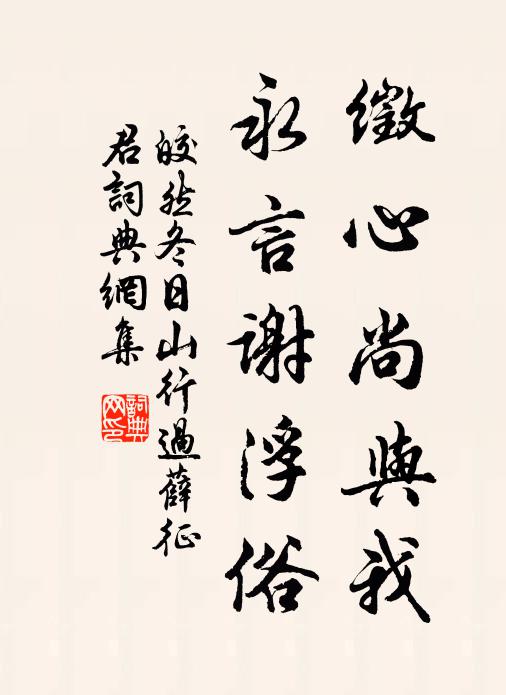 徵心尚與我
永言謝浮俗
皎然冬日山行過薛征
君詞典網集
詞典網印